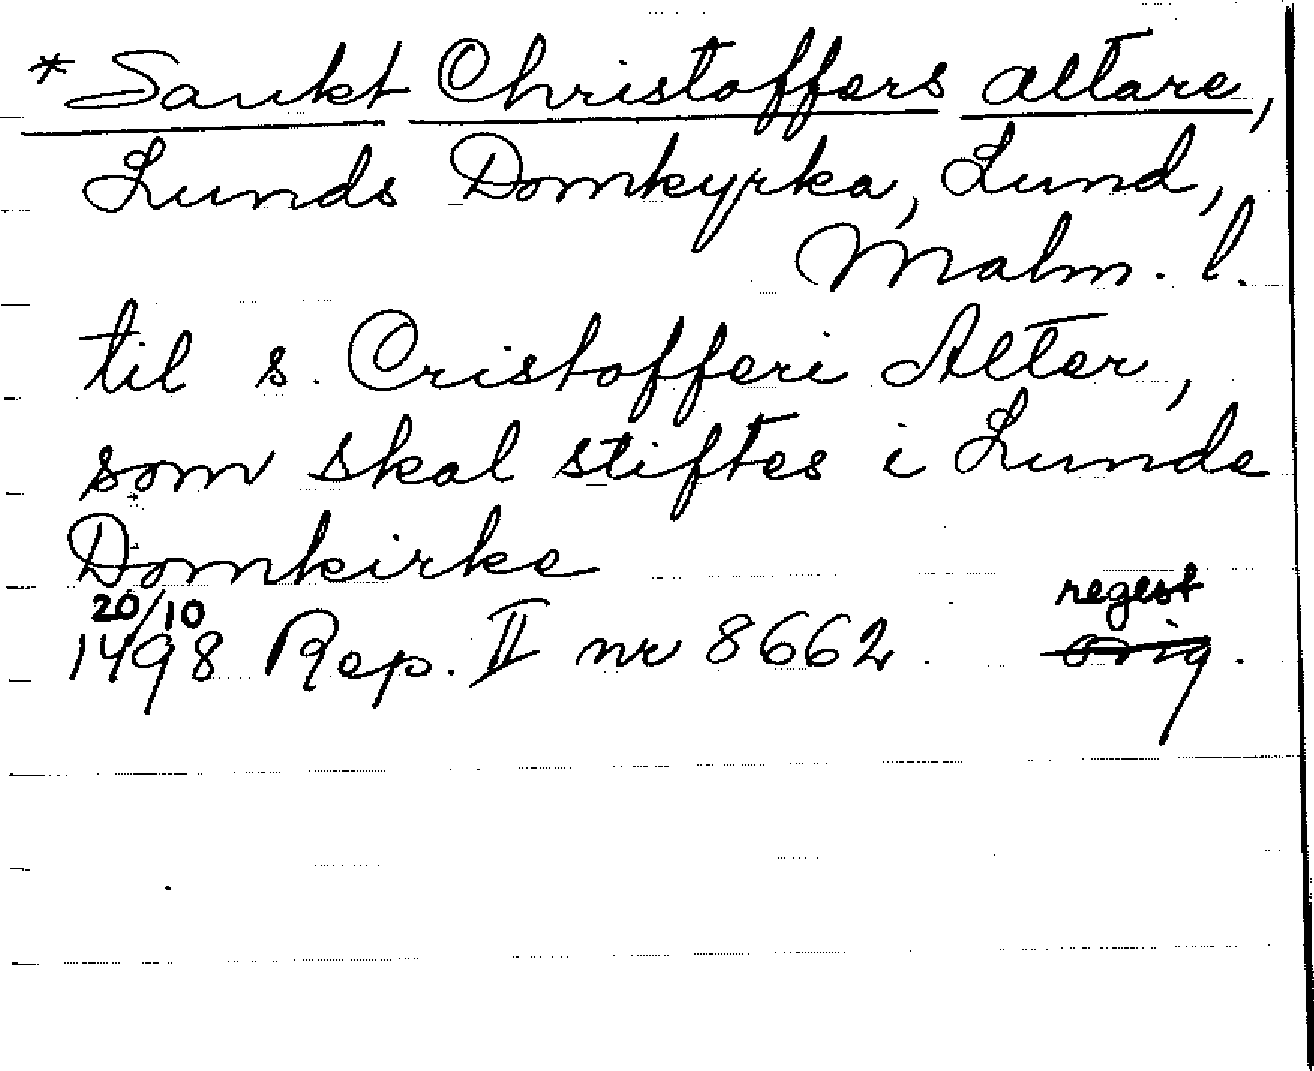 * Sankt Christoffers altare,
Lunds Domkyrka, Lund,
Malm. l.
til s. Cristofferi Alter,
som skal stiftes i Lunde
Domkirke
20/10 regest
1498 Rep. II nr 8662. orig.